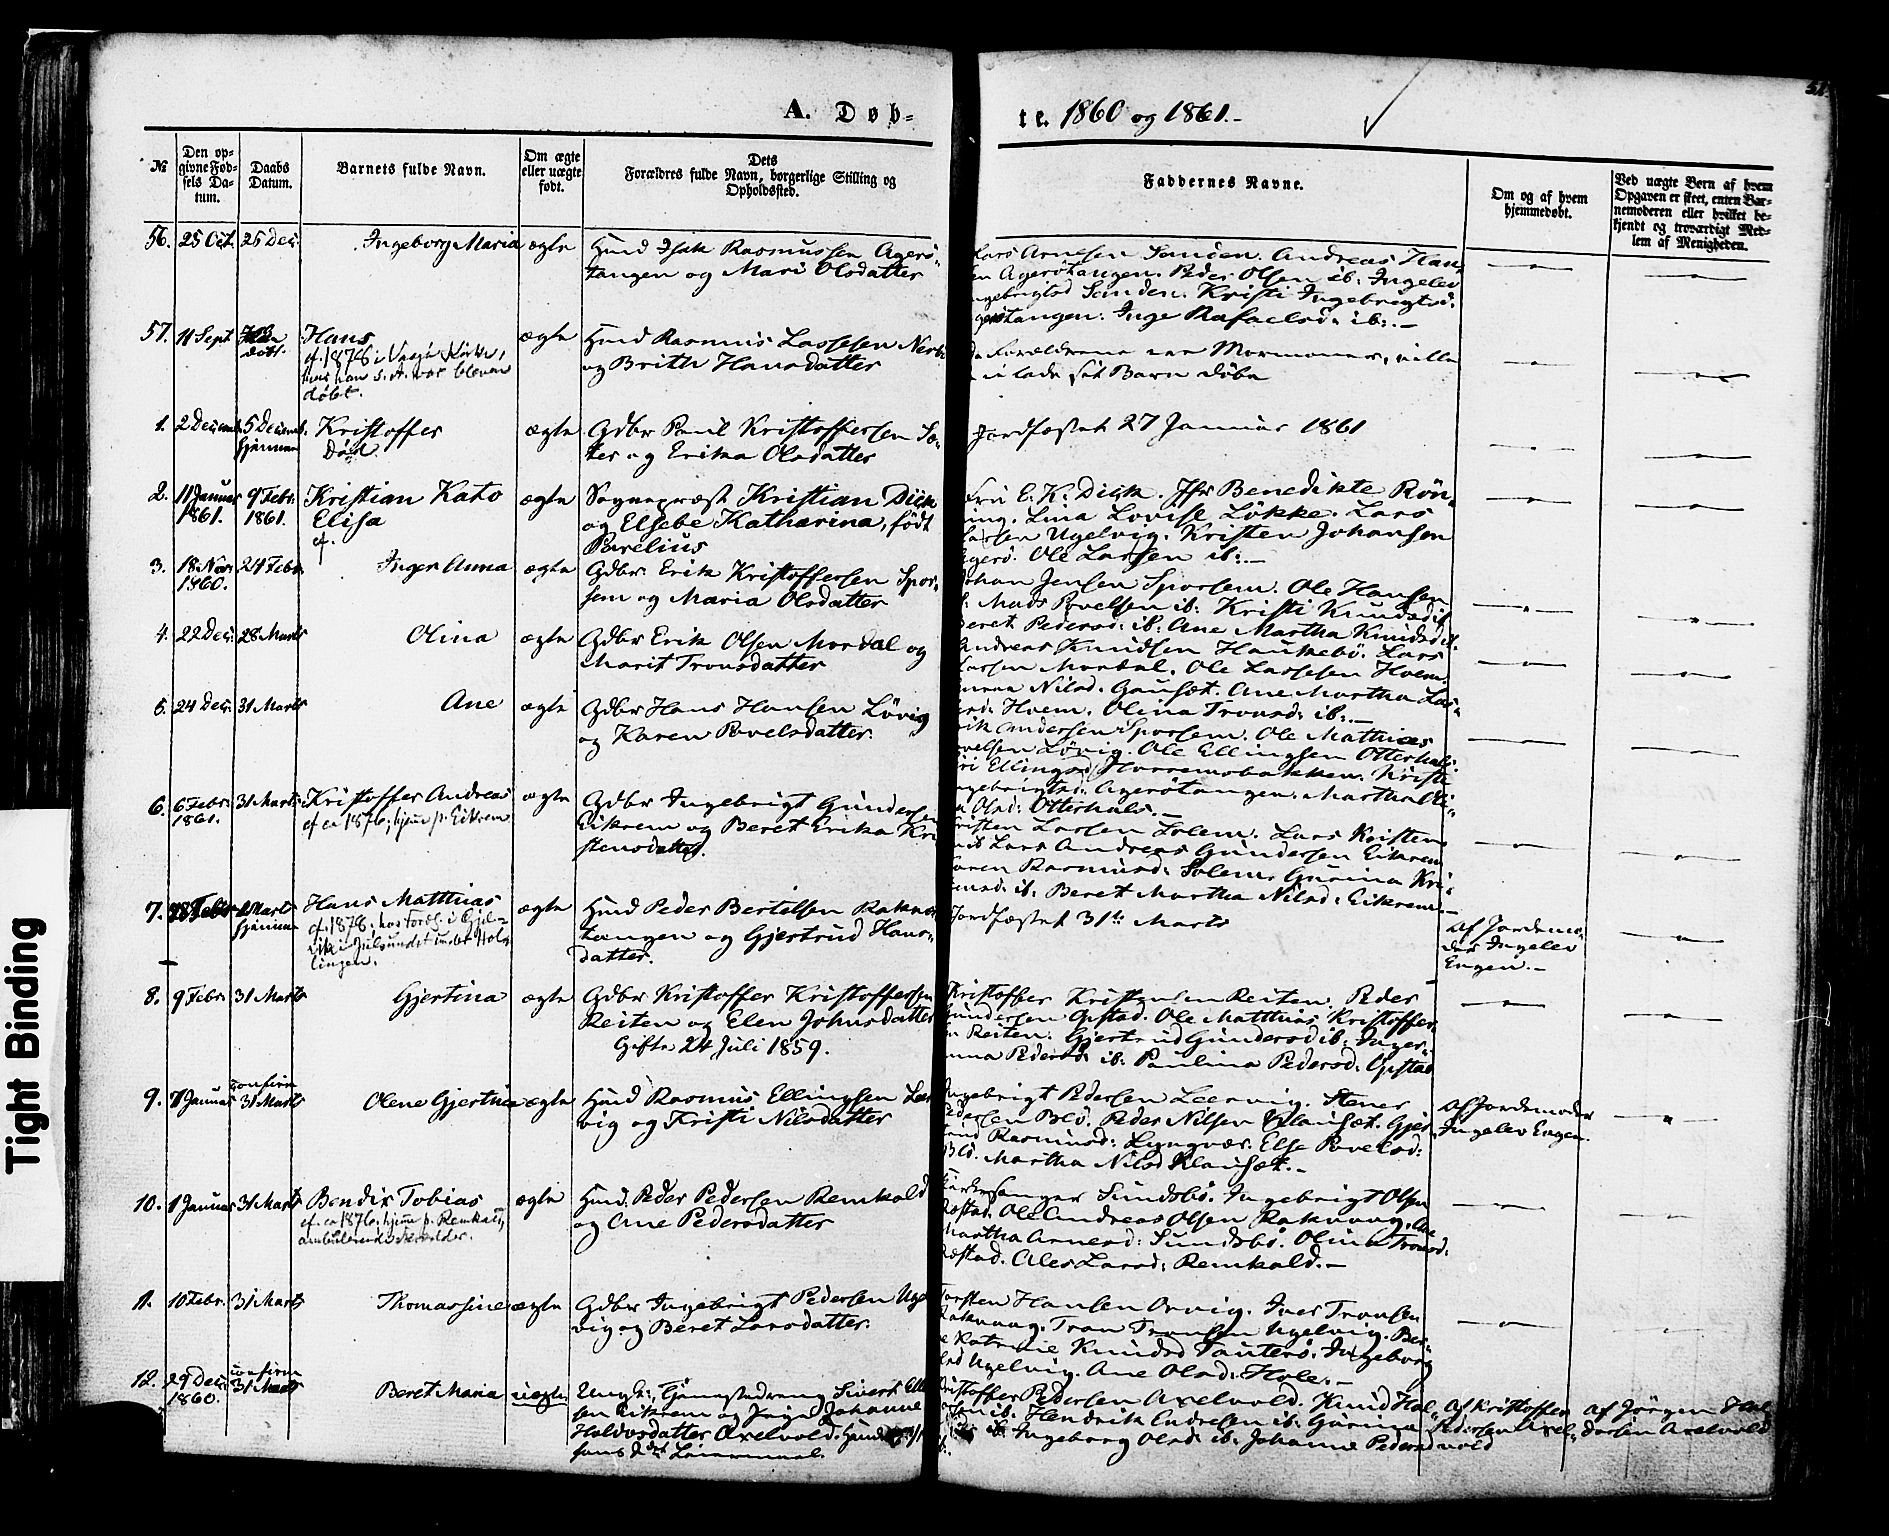 A. Døb-
te. 1860 og 1861.-
51.
№
Den op-
givne Fød-
sels Da-
tum.
Daabs
Datum.
Barnets fulde Navn.
Om ægte
eller uægte
født.
Dets
Forældres fulde Navn, borgerlige Stilling og
Opholdssted.
Faddernes Navne.
Om og af hvem
hjemmedøbt.
Ved uægte Børn af hvem
Opgaven er skeet, enten Bar-
nemoderen eller hvilket be-
kjendt og troværdigt Med-
lem af Menigheden.
56. 25 Oct. 25 Dec. Ingeborg Maria ægte
Huusmd Isak Rasmussen Agerö-
tangen og Mari Olsdatter
Lars Arnesen Sanden. Andreas Han-
sen Agerötangen. Peder Olsen ib: Ingelev
Ingebrigtsd Sanden. Kristi Ingebrigtsd.
Agerötangen. Inge Rafaelsd: ib:.-
57. 11 Sept. døbt. Hans ægte
cf. 1876 i
døbt.
Huusmd Rasmus Lassesen
og Brith Hansdatter
Da Forældrene ere Mormoner, ville
de ei lade sit Barn döbe
1. 2 Decemb. 5 Decemb. hjemme Kristoffer ægte
Död
Gdbr Paul Kristoffersen Sæ-
ter og Erika Olsdatter
Jordfæstet 27 Januar 1861
2. 11 Januar 1861. 9 Febr. 1861. Kristian Kato
Elisa
cf.
ægte
Sognepræst Kristian Dick
og Elsebe Katharina, født
Parelius
Fru E. K. Dick. Jfr Benedikte Rön-
ning. Lina Lovise Løkke. Lars
Larsen Ugelvig. Kristen Johansen
Agerö. Ole Larsen ib:.-
3. 18 Nov. 1860. 24 Febr. Inger Anna ægte
Gdbr. Erik Kristoffersen Spor-
sem og Maria Olsdatter
Johan Jensen Sporsem. Ole Hansen
ib: Mads Povelsen ib: Kristi Knudsd ib
Beret Pedersd: ib: Ane Martha Knudsd ib.
4. 22 Dec. 28 Marts Olina ægte
Gdbr Erik Olsen Mordal og
Marit Tronsdatter
Andreas Knudsen Haukebö. Lars
Larsen Mordal. Ole Lassesen Hoem.
Nilsd. Gauset. Ane Martha Las-
sesd: Hoem. Olina Tronsd: ib:.-
5. 24 Dec. 31 Marts Ane ægte
Gdbr Hans Hansen Lövig
og Karen Povelsdatter.
Erik Andersen Sporsem. Ole Mathias
Povelsen Lövig. Ole Ellingsen Otterhals.
Ingebrigtsd: Agerötangen. Martha
Olsd: Otterhals.-
6. 6 Febr. 1861. 31 Marts Kristoffer Andreas ægte
cf ca 1876; hjem p. Eikrem
Gdbr Ingebrigt Gundersen
Eikrem og Beret Erika Kri-
stensdatter.
Kristen Larsen Solem. Lars Kristen-
sen ib Lars Andreas Gundersen Eikrem
Karen Rasmusd: Solem. Gurina Kri-
stensd: ib: Beret Martha Nilsd: Eikrem.-
7. Febr. Marts hjemme Hans Matthias ægte
Huusmd Peder Bertelsen Raknes-
tangen og Gjertrud Hans-
datter.
Jordfæstet 31te Marts
Af Jordemo-
der Ingelev
Engen.-
8. 9 Febr. 31 Marts Gjertina ægte
Gdbr Kristoffer Kristoffersen
Reiten og Elen Johnsdatter
Gifte 24 Juli 1859.
Kristoffer Kristensen Reiten. Peder
Gundersen Opstad. Ole Matthias Kristoffer-
sen Reiten. Gjertrud Gundersd ib: Inger
Anna Pedersd: ib: Paulina Pedersd: Opstad
9. Januar confirm 31 Marts Olene Gjertine ægte
Huusmd Rasmus Ellingsen Leer-
vig og Kristi Nilsdatter
Ingebrigt Pedersen Leervig. Stener
Pedersen Blö. Peder Nilsen Klauset. Gjer-
trud Rasmusd: Lyngnæs. Else Povelsd:
Blö. Martha Nilsd Klauset.-
Af Jordemoder
Ingelev Engen.
10. 1 Januar 31 Marts Bendix Tobias ægte
cf. ca 1876; hjem p. Remkall,
Huusmd. Peder Pedersen Remkald
og Ane Pedersdatter
Kirkesanger Sundsbö. Ingebrigt Olsen
Ræstad. Ole Andreas Olsen Rakvaag. Ane
Martha Arnesd: Sundsbö. Olina Tronsd:
Ræstad. Ales Larsd: Remkald.-
11. 10 Febr. 31 Marts Thomassine ægte
Gdbr Ingebrigt Pedersen Ugel-
vig og Beret Larsdatter.
Torsten Hansen Orvig. Iver Tronsen
Rakvaag. Tron Tronsen Ugelvig. Ber-
Katrine Knudsd Tauterö. Ingeborg
Ugelvig. Ane Olsd: Hole.-
12. 29 Dec. 1860. confirm 31 Marts Beret Maria uægte
Ungk:, Sivert Elling-
sen Eikrem og Pige Johanne
Haldorsdatter Axelvold.
hans 2det Leiermaal.
Kristoffer Pedersen Axelvold. Knud Hal-
dorsen ib. Hendrik Andresen ib: Gurina
ib: Ingeborg Olsd: ib: Johanne Pedersd
Af Kristoffer
Pedersen Axel-
vold
Af Jörgen Hal-
dorsen Axelvold
Tight Binding